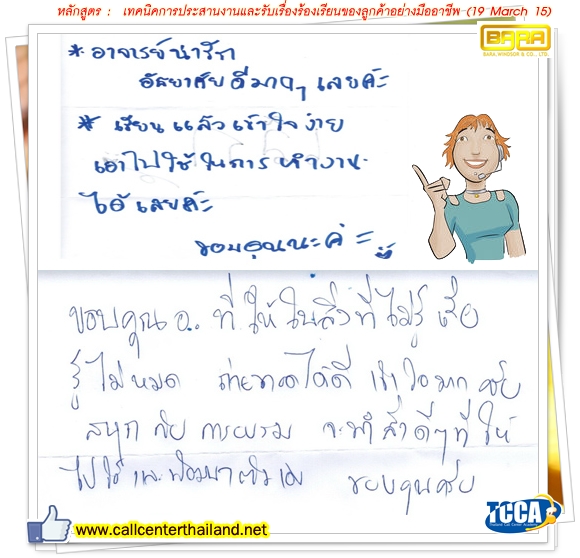 หลักสูตร : เทคนิคการประสานงานและรับเรื่องร้องเรียนของลูกค้าอย่างมืออาชีพ (19 March 15)
BARA
BARA WINDSOR & CO., LTD.
* อาจารย์น่ารัก
อัธยาศัยดีมากๆ เลยค่ะ
* เรียนแล้วเข้าใจง่าย
เอาไปใช้ในการทำงาน
ได้เลยค่ะ
ขอบคุณนะค่ะ
ขอบคุณ อ. ที่ให้ในสิ่งที่ไม่รู้
รู้ไม่หมด ถ่ายทอดได้ดี เข้าใจมากครับ
สนุกกับการอบรม จะนำสิ่งดีๆ ที่ให้
ไปใช้และพัฒนาตัวเอง ขอบคุณครับ
www.callcenterthailand.net
TCCA
Thailand Call Center Academy